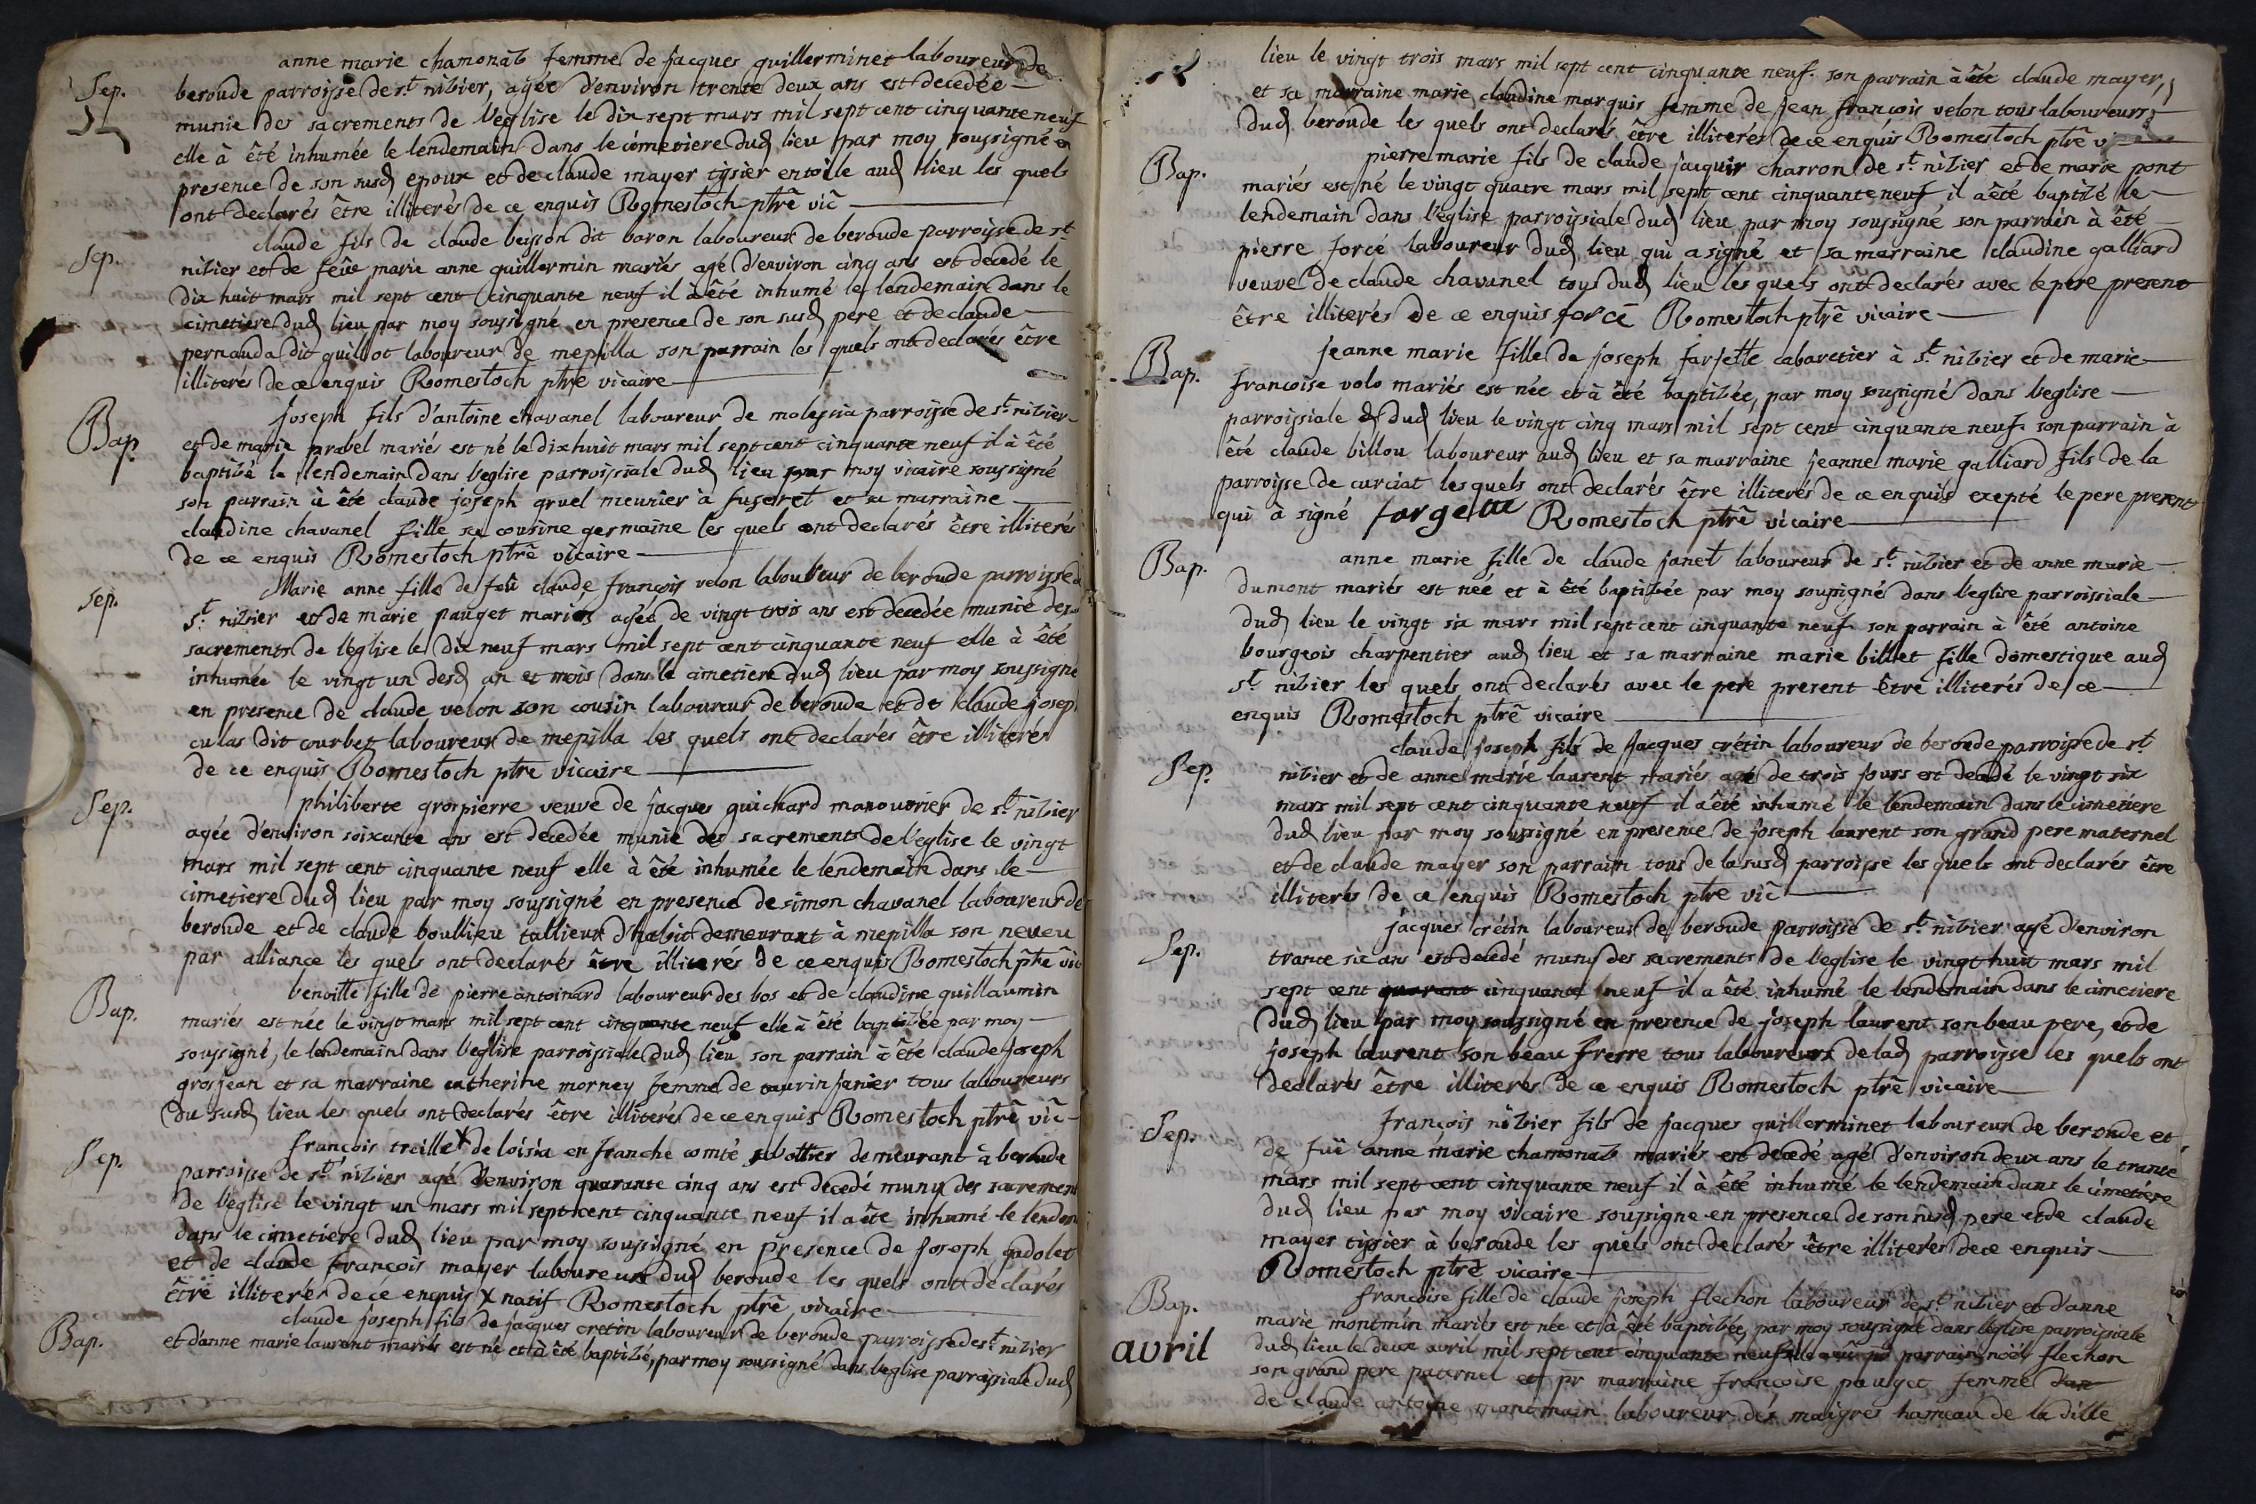 anne marie chamonal femme de jacques guillerminet laboureur de
Sep. beroude parroisse de st nizier, agée d'environ trente deux ans est decedée
munie des sacrements de l'eglise le dix sept mars mil sept cent cinquante neuf
elle à été inhumée le lendemain dans le cimetiere dud lieu par moy soussigné en
presence de son susd epoux et de claude mayer tissier en toile aud lieu les quels
ont declarés être illiterés de ce enquis Romestoch ptrê vic
Sep. claude fils de claude beisson dit baron laboureur de beroude parroisse de st
nizier et de feüe marie anne guillermin mariés agé d'environ cinq ans est decedé le
dix huit mars mil sept cent cinquante neuf il à été inhumé le lendemain dans le
cimetiere dud lieu par moy soussigné en presence de son susd pere et de claude
pernauda dit guillot laboureur de mepilla son parrain les quels ont declarés être
illiterés de ce enquis Romestoch ptre vicaire
Bap joseph fils d'antoine chavanel laboureur de parroisse de st nizier
et de marie prabel mariés est né le dix huit mars mil sept cent cinquante neuf il à été
baptizé le lendemain dans l'eglise parroissiale dud lieu par moy vicaire soussigné
son parrain à été claude joseph gruel meunier à et sa marraine
claudine chavanel fille sa cousine germaine les quels ont declarés être illiterés
de ce enquis Romestoch ptrê vicaire
Sep. Marie anne fille de feû claude françois velon laboureur de beroude parroisse
st nizier et de marie pauget mariés agée de vingt trois ans est decedée munie des
sacrements de l'eglise le dix neuf mars mil sept cent cinquante neuf elle à été
inhumée le vingt un desd an et mois dans le cimetiere dud lieu par moy soussigné
en presence de claude velon son cousin laboureur de beroude et de claude josep
culas dit courbet laboureur de mepilla les quels ont declarés être illiterés
de ce enquis Romestoch ptre vicaire
Sep. philiberte grospierre veuve de jacques guichard manouvrier de st nizier
agée d'environ soixante ans est decedée munie des sacrements de l'eglise le vingt
mars mil sept cent cinquante neuf elle à été inhumée le lendemain dans le
cimetiere dud lieu par moy soussigné en presence de simon chavanel laboureur de
beroude et de claude boullieu tallieur d'habit demeurant à mepilla son neveu
par alliance les quels ont declarés être illiterés de ce enquis Romestoch ptre vic
Bap. benoitte fille de pierre antoinard laboureur des bos et de claudine guillaumin
mariés est née le vingt mars mil sept cent cinquante neuf elle à été baptizée par moy
soussigné, le lendemain dans l'eglise parroissiale dud lieu son parrain à été claude joseph
grosjean et sa marraine catherine morney femme de taurin janier tous laboureurs
du susd lieu les quels ont declarés être illiterés de ce enquis Romestoch ptrê vic
Sep. françois treille X de loisia en franche comté sabottier demeurant à beroude
parroisse de st nizier agé d'environ quarante cinq ans est decedé muny des sacremen
de l'eglise le vingt un mars mil sept cent cinquante neuf il a été inhumé le lendem
dans le cimetiere dud lieu par moy soussigné en presence de joseph gadolet
et de claude françois mayer laboureur dud beroude les quels ont declarés
être illiterés de ce enquis X natif Romestoch ptrê vicaire
Bap. claude joseph fils de jacques cretin laboureur de beroude parroisse de st nizier
et d'anne marie laurent mariés est né et à été baptizé, par moy soussigné dans l'eglise parroissiale dud
lieu le vingt trois mars mil sept cent cinquante neuf. son parrain à été claude mayer,
et sa marraine marie claudine marquis femme de jean françois velon tous laboureurs
dud beroude les quels ont declarés être illiterés de ce enquis Romestoch ptrê v
Bap. pierre marie fils de claude jacquir charron de st nizier et de marie pont
mariés est né le vingt quatre mars mil sept cent cinquante neuf il a été baptizé le
lendemain dans l'eglise parroissiale dud lieu par moy soussigné son parrain à été
pierre forcé laboureur dud lieu qui a signé et sa marraine claudine galliard
veuve de claude chavanel tous dud lieu les quels ont declarés avec le pere present
être illiterés de ce enquis force Romestoch ptrê vicaire
Bap. jeanne marie fille de joseph farjette cabaretier à st nizier et de marie
françoise volo mariés est née et à été baptizée, par moy soussigné dans l'eglise
parroissiale dud lieu le vingt cinq mars mil sept cent cinquante neuf son parrain à
été claude billou laboureur aud lieu et sa marraine jeanne marie galliard fils de la
parroisse de curciat les quels ont declarés être illiterés de ce enquis exepté le pere present
qui à signé Romestoch ptrê vicaire
Bap. anne marie fille de claude janet laboureur de st nizier et de anne marie
dumont mariés est née et à été baptizée par moy soussigné dans l'eglise parroissiale
dud lieu le vingt six mars mil sept cent cinquante neuf son parrain à été antoine
bourgeois charpentier aud lieu et sa marraine marie billet fille domestique aud
st nizier les quels ont declarés avec le pere present être illiterés de ce
enquis Romestoch ptrê vicaire
Sep. claude joseph fils de jacques crétin laboureur de beroude parroisse de st
nizier et de anne marie laurent mariés agé de trois jours est decedé le vingt six
mars mil sept cent cinquante neuf il a été inhumé le lendemain dans le cimetiere
dud lieu par moy soussigné en presence de joseph laurent son grand pere maternel
et de claude mayer son parrain tous de la susd parroisse les quels ont declarés être
illiterés de ce enquis Romestoch ptre vic
Sep. jacques crétin laboureur de beroude parroisse de st nizier agé d'environ
trante six ans est decedé muny des sacrements de l'eglise le vingt huit mars mil
sept cent quarant cinquante neuf il a été inhumé le lendemain dans le cimetiere
dud lieu par moy soussigné en presence de joseph laurent son beau pere, et de
joseph laurent son beau frerre tous laboureurs de lad parroisse les quels ont
declarés être illiterés de ce enquis Romestoch ptrê vicaire
Sep. françois nizier fils de jacques guillerminet laboureur de beroude et
de fuë anne marie chamonal mariés est decedé agé d'environ deux ans le trante
mars mil sept cent cinquante neuf il à été inhumé le lendemain dans le cimetiere
dud lieu par moy vicaire soussigne en presence de son susd pere et de claude
mayer tissier à beroude les quels ont declarés être illiterés de ce enquis
Romestoch ptrê vicaire
Bap. françoise fille de claude joseph flechon laboureur de st nizier et d'anne
marie montmin mariés est née et à été baptizée, par moy soussigné dans l'eglise parroissiale
avril dud lieu le deux avril mil sept cent cinquante neuf parrain noël flechon
son grand pere paternel et pr marraine françoise pauget femme
de claude antoine laboureur des maigres hameau de la ditte